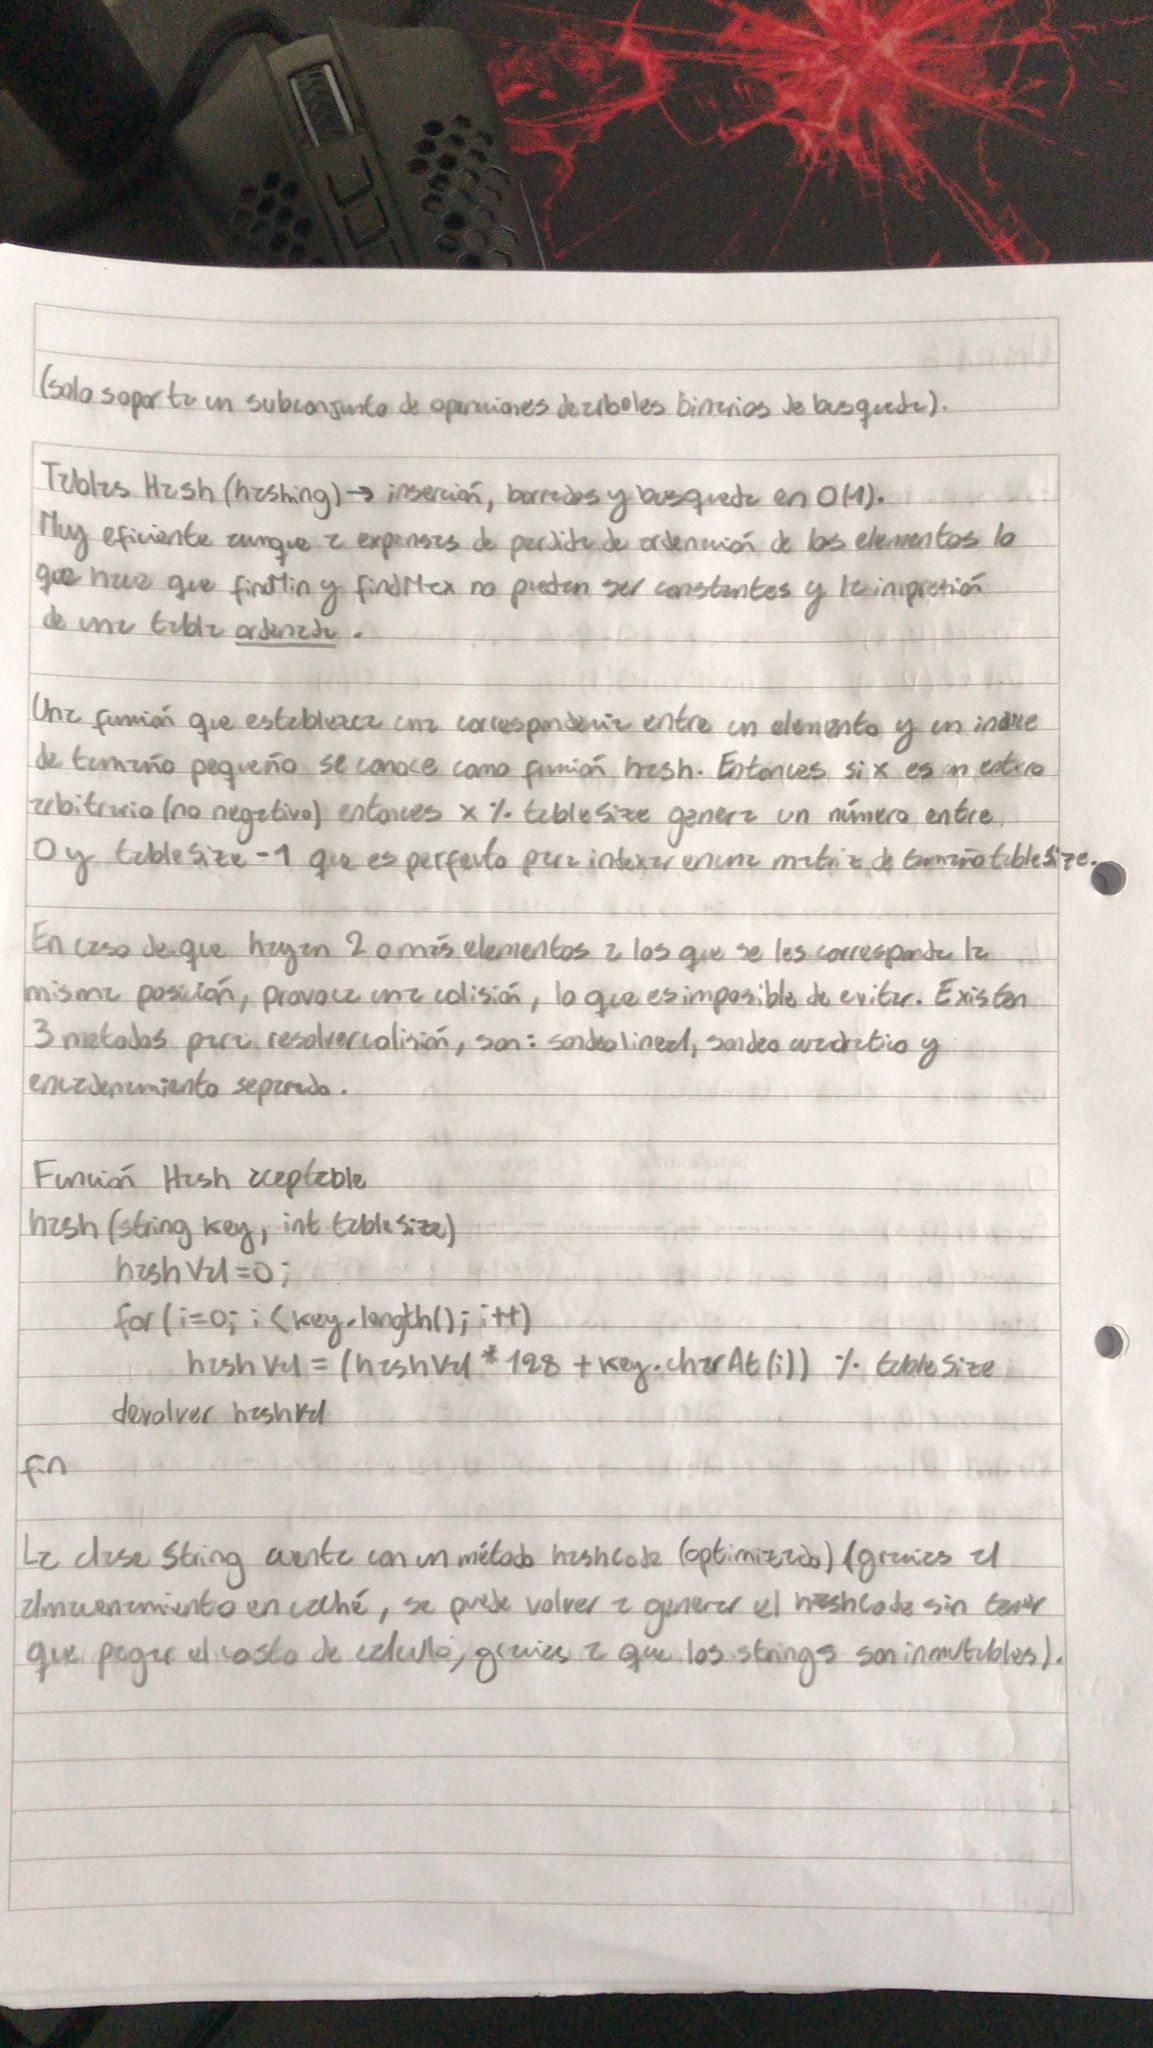 (solo soporta un subconjunto de operaciones de arboles binarios de busqueda).
Tablas Hash (hashing) → inserción, borrados y busqueda en O(1).
Muy eficiente aunque a expensas de perdida de ordenación de los elementos lo
que hace que findMin y findMax no puedan ser constantes y la impresión
de una tabla ordenada.
Una función que establezca una correspondencia entre un elemento y un indice
de tamaño pequeño se conoce como función hash. Entonces si x es un entero
arbitrario (no negativo) entonces x % tableSize genera un número entre
0 y tableSize -1 que es perfecto para indexar en una matriz de tamaño tableSize.
En caso de que hayan 2 o más elementos a los que se les corresponda la
misma posición, provoca una colisión, lo que es imposible de evitar. Existen
3 metodos para resolver colisión, son: sondeo lineal, sondeo cuadratico y
encadenamiento separado.
Función Hash aceptable
hash (string key, int tableSize)
hashVal = 0;
for (i=0; i < key.length(); i++)
hashVal = (hashVal * 128 + key.charAt(i)) % tableSize
devolver hashVal
fin
La clase String cuenta con un método hashCode (optimizado) (gracias al
almacenamiento en caché, se puede volver a generar el hashCode sin tener
que pagar el costo de calculo, gracias a que los strings son inmutables).